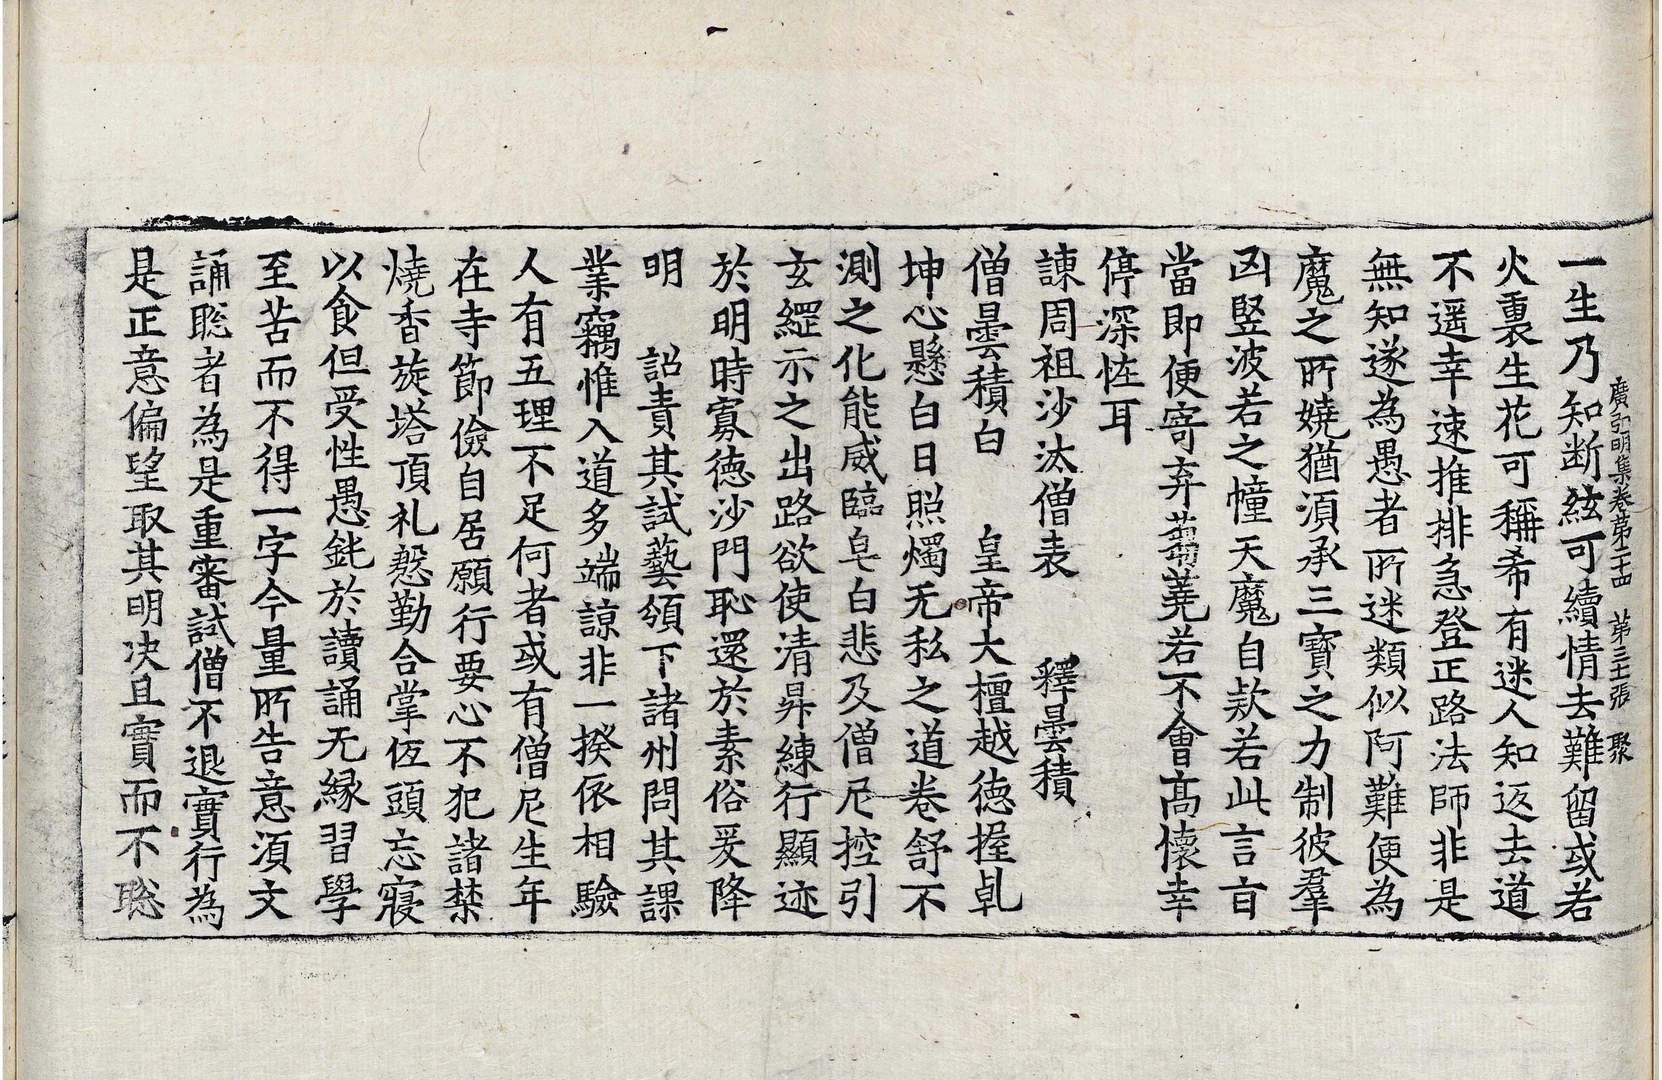 一生乃知断絃可續情去難留或若
廣弘明集卷第二十四　第三十一張　聚
火裏生花可稱希有迷人知返去道
不遥幸速推排急登正路法師非是
無知遂為愚者所迷類似阿難便為
魔之所嬈猶湏承三寶之力制彼羣
凶竪波若之幢天魔自款若此言旨
當即便寄弃蒭蕘若不會髙懷幸
停深恠耳
諫周祖沙汰僧表　　釋曇積
僧曇積白　皇帝大檀越德握乹
坤心懸白日照燭无私之道卷舒不
測之化能威臨皂白悲及僧尼控引
玄綱示之出路欲使清昇練行顯迹
於明時寡德沙門恥還於素俗爰降
明　詔責其試藝頒下諸州問其課
業竊惟入道多端諒非一揆依相驗
人有五理不足何者或有僧尼生年
在寺節儉自居願行要心不犯諸禁
燒香旋塔頂礼慇勤合掌低頭忘寢
以食但受性愚鈍於讀誦无縁習學
至苦而不得一字今量所告意湏文
誦聡者為是重審試僧不退實行為
是正意偏望取其明决且實而不聡